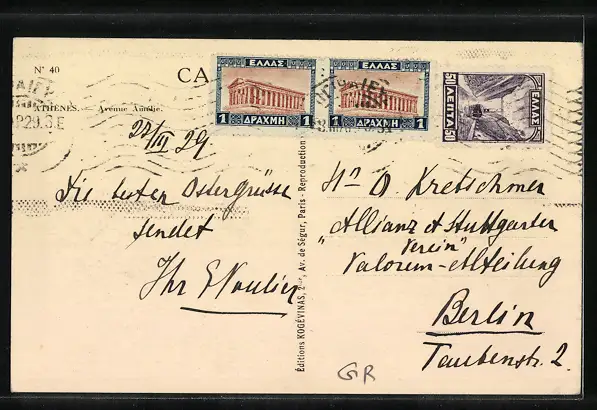 N° 40
CA
ATHÈNES. — Avenue Aurélie.
ΕΛΛΑΣ
1 ΔΡΑΧΜΗ 1
ΕΛΛΑΣ
1 ΔΡΑΧΜΗ 1
ΕΛΛΑΣ
50 ΛΕΠΤΑ 50
27/III 29
Die besten Ostergrüsse
sendet
Ihr
Hn O. Kretschmer
"Allianz et Stuttgarter
Verein"
Valoren-Abteilung
Berlin
Taubenstr. 2.
Éditions KOGÉVINAS, Av. de Ségur, Paris - Reproduction
GR